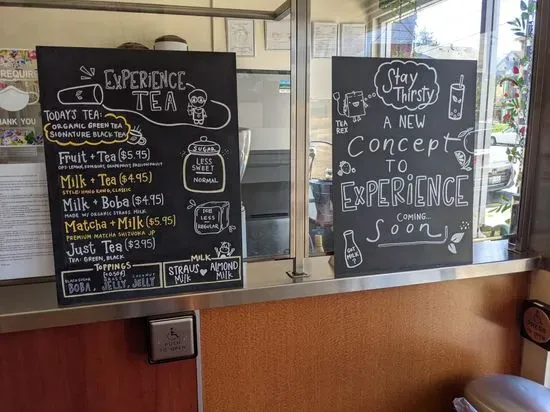 REQUIRE
THANK YOU
EXPERIENCE
TEA
TODAY'S TEA:
ORGANIC GREEN TEA
SIGNATURE BLACK TEA
Fruit + Tea ($5.95)
Milk + Tea ($4.95)
STYLE: HONG KONG, CLASSIC
Milk + Boba ($4.95)
MADE W/ ORGANIC STRAUS MILK
Matcha + Milk ($5.95)
PREMIUM MATCHA SHIZUOKA JP
Just Tea ($3.95)
TEA: GREEN, BLACK
TOPPINGS
(+0.50¢)
BOBA, JELLY, JELLY
SUGAR
LESS
SWEET
NORMAL
ICE
LESS
REGULAR
MILK
STRAUS ALMOND
MILK MILK
Stay
Thirsty
TEA
REX
A NEW
CONCEPT
TO
EXPERIENCE
COMING...
Soon
GOT
MILK
PUSH
TO OPEN